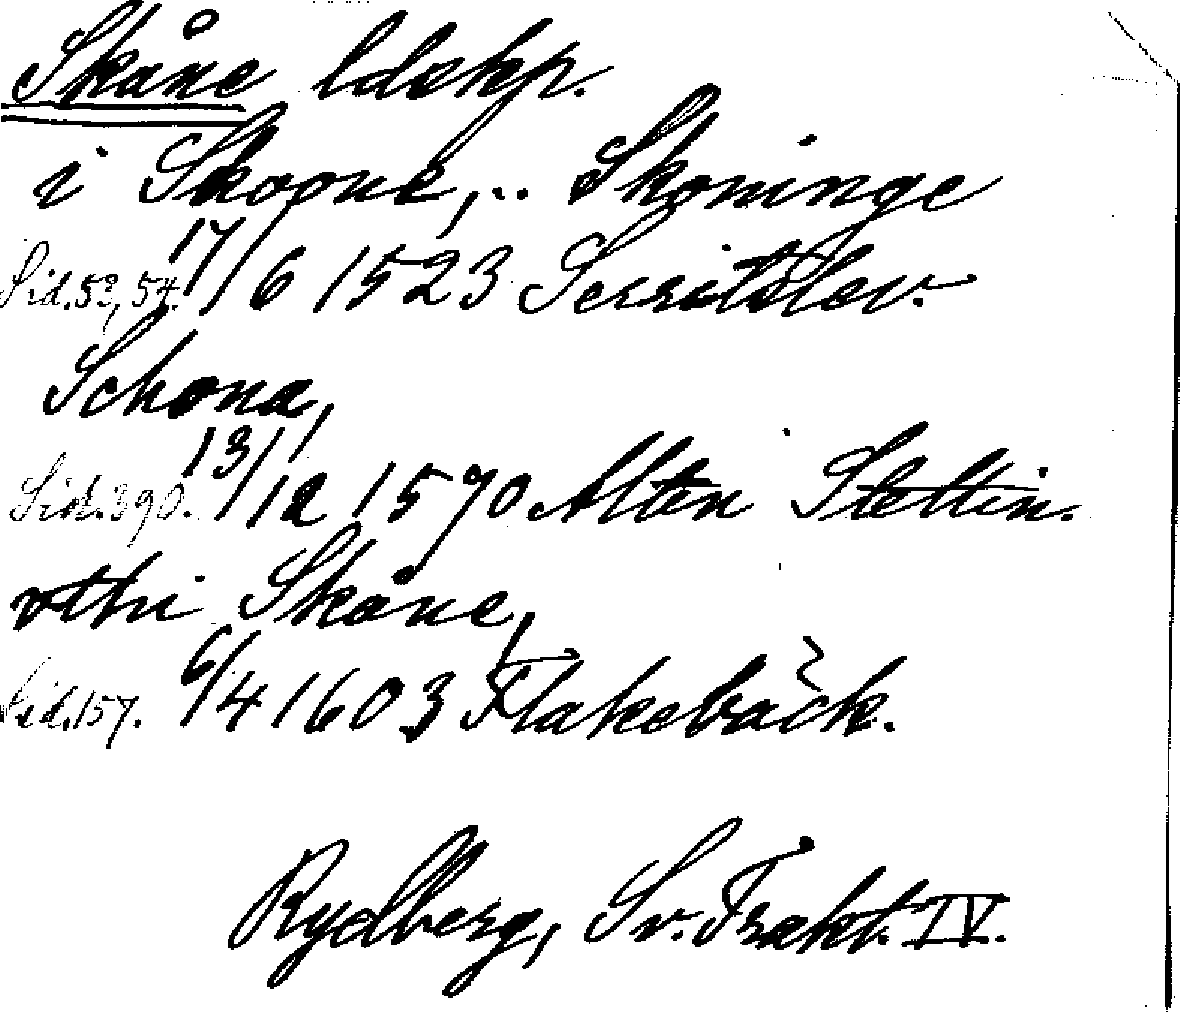 Skåne ldskp.
i Skoone, .. Skoninge
Sid. 53, 54. 17/6 1523 Serritslev.
Schona,
Sid. 390. 13/12 1570 Alten Stettin.
vthi Skåne,
Sid. 157. 6/4 1603 Flakebäck.
Rydberg, Sv. Trakt. IV.